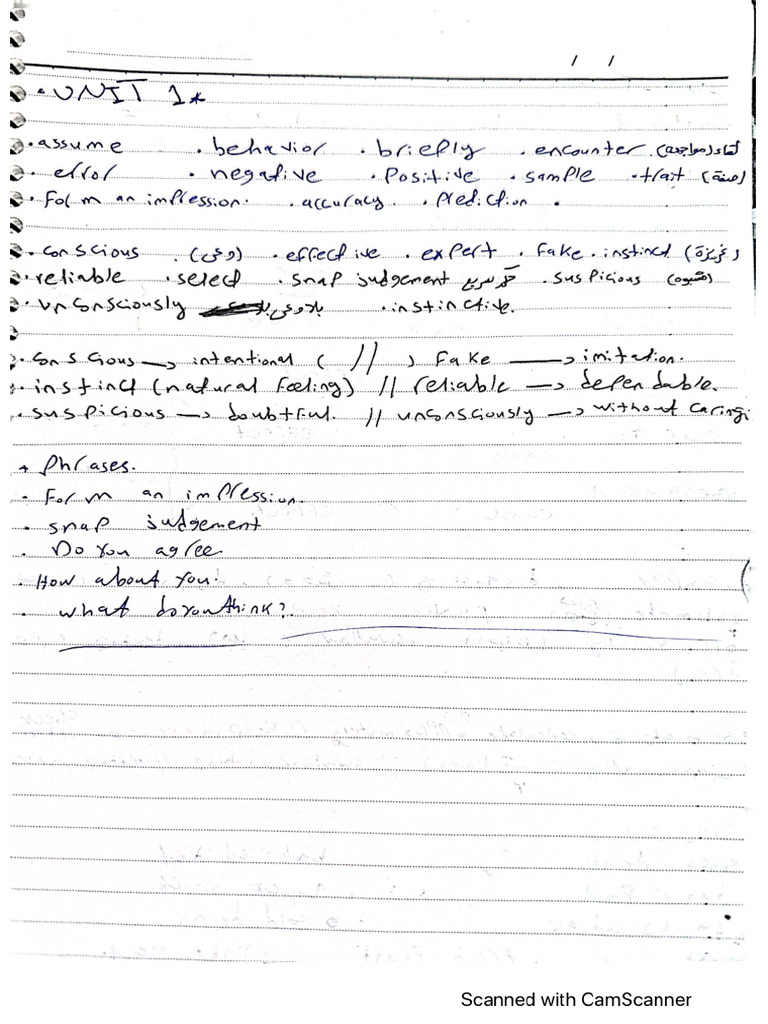 / /
• UNIT 1 *
• assume • behavior • briefly • encounter (مواجهة) لقاء
• error • negative • Positive • sample • trait (صفة)
• Form an impression. • accuracy. • Prediction •
• conscious (وعي) • effective • expert • fake • instinct (غريزة)
• reliable • select • snap judgement حكم سريع • suspicious (مشبوه)
• unconsciously بلا وعي • instinctive.
• conscious → intentional ( // ) fake → imitation.
• instinct (natural feeling) // reliable → dependable.
• suspicious → doubtful. // unconsciously → without caring
+ Phrases.
• Form an impression.
• snap judgement
• Do You agree
• How about You.
• what do you think?
Scanned with CamScanner